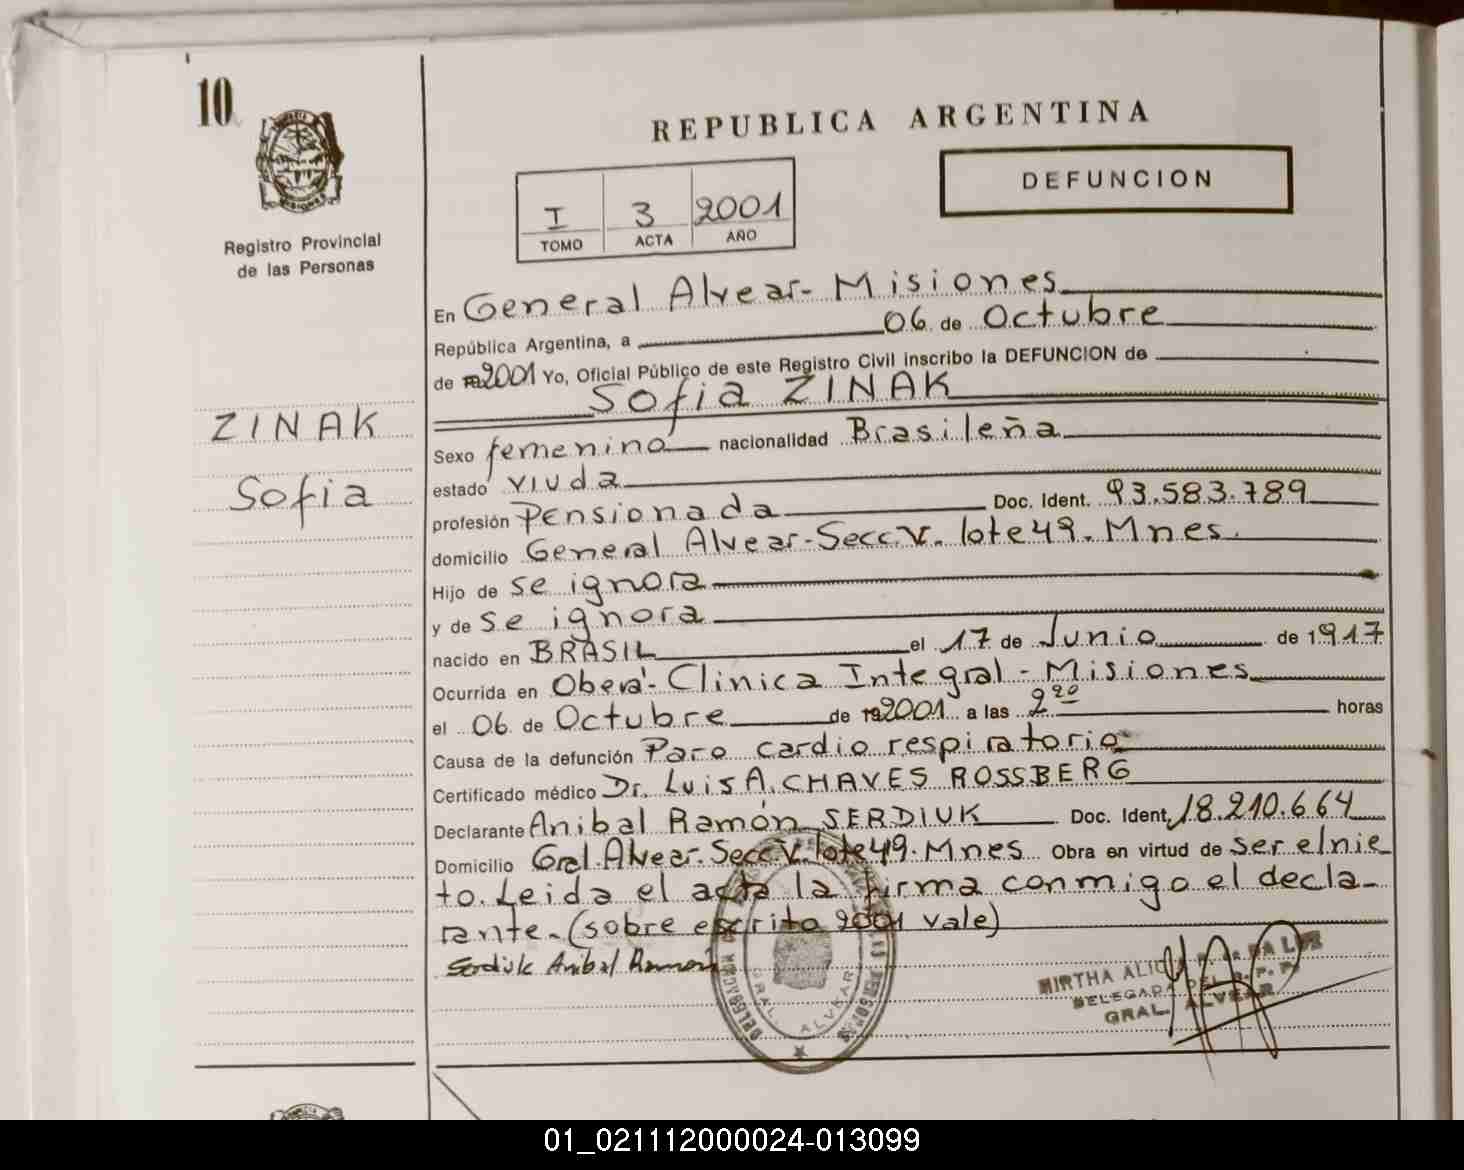 10
REPUBLICA ARGENTINA
DEFUNCION
I 3 2001
TOMO ACTA AÑO
Registro Provincial
de las Personas
ZINAK
Sofia
En General Alvear - Misiones
República Argentina, a 06 de Octubre
de 2001 Yo, Oficial Público de este Registro Civil inscribo la DEFUNCION de
Sofia ZINAK
Sexo femenino nacionalidad Brasileña
estado viuda
profesión Pensionada Doc. Ident. 93.583.789
domicilio General Alvear - Secc. V. lote 49. Mnes.
Hijo de se ignora
y de se ignora
nacido en BRASIL el 17 de Junio de 1917
Ocurrida en Oberá - Clinica Integral - Misiones
el 06 de Octubre de 2001 a las 2 20 horas
Causa de la defunción Paro cardio respiratorio
Certificado médico Dr. Luis A. CHAVES ROSSBERG
Declarante Anibal Ramón SERDIUK Doc. Ident. 18.210.664
Domicilio Gral. Alvear. Secc. V. lote 49. Mnes Obra en virtud de ser el nie
to. Leida el acta la firma conmigo el decla-
rante. (sobre escrito 2001 vale)
Serdiuk Anibal Ramón
MIRTHA ALICIA DA LUZ
DELEGADA DEL R. P. P.
GRAL. ALVEAR
GRAL. ALVEAR
01_021112000024-013099